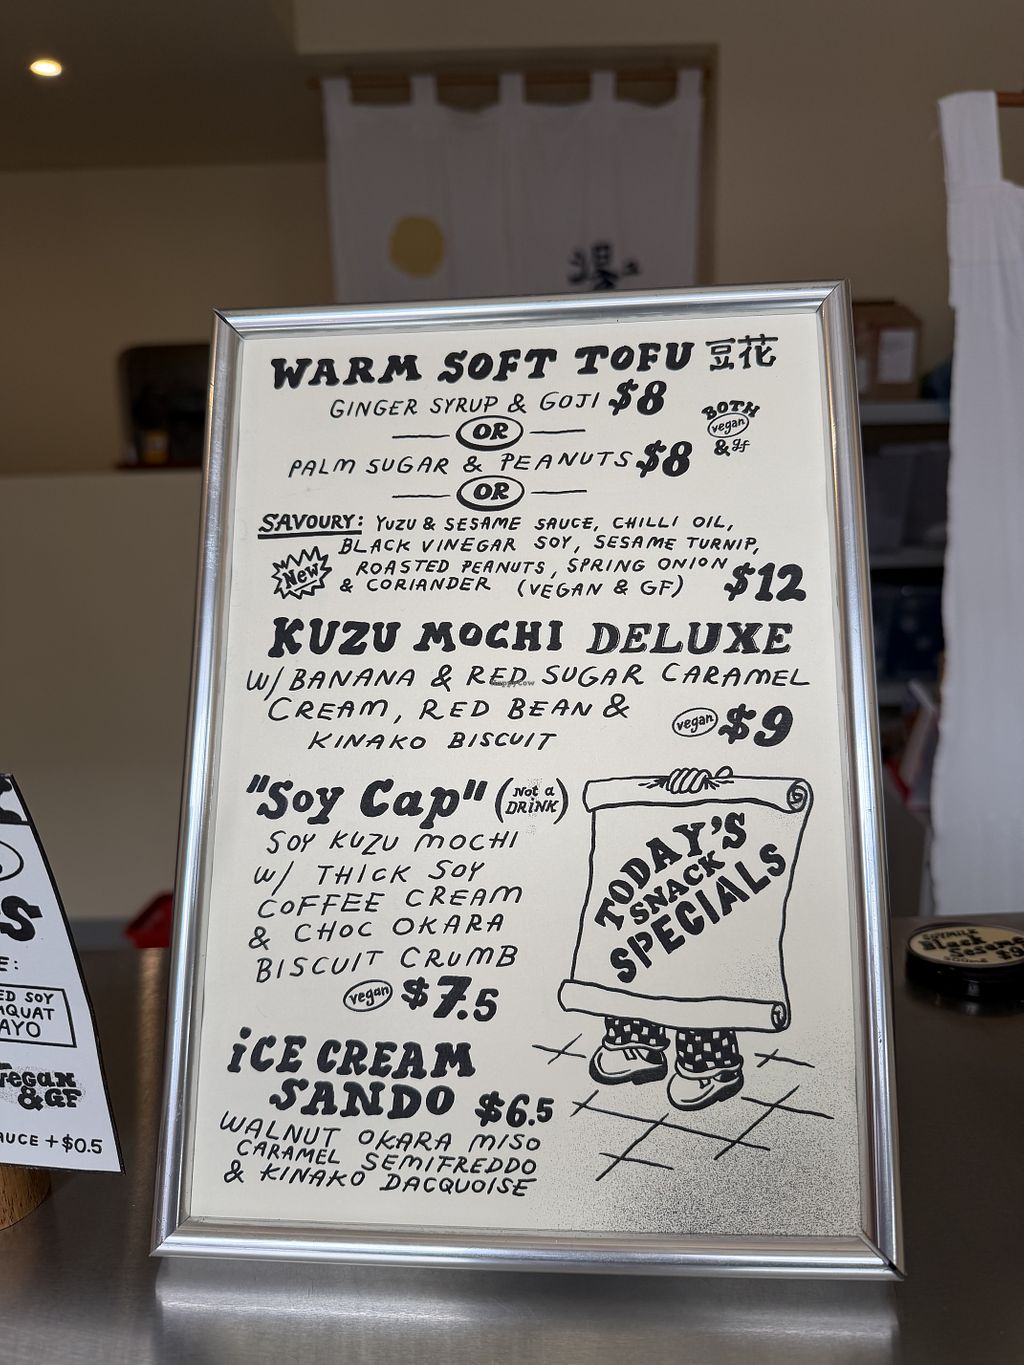 WARM SOFT TOFU 豆花
GINGER SYRUP & GOJI $8
BOTH
vegan
& gf
OR
PALM SUGAR & PEANUTS $8
OR
SAVOURY: YUZU & SESAME SAUCE, CHILLI OIL,
BLACK VINEGAR SOY, SESAME TURNIP,
New
ROASTED PEANUTS, SPRING ONION
& CORIANDER (VEGAN & GF) $12
KUZU MOCHI DELUXE
W/ BANANA & RED SUGAR CARAMEL
CREAM, RED BEAN &
KINAKO BISCUIT
vegan $9
HappyCow
"Soy Cap" (Not a DRiNK)
SOY KUZU MOCHI
W/ THICK SOY
COFFEE CREAM
& CHOC OKARA
BISCUIT CRUMB
vegan $7.5
TODAY'S
SNACK
SPECIALS
iCE CREAM
SANDO $6.5
WALNUT OKARA MISO
CARAMEL SEMIFREDDO
& KINAKO DACQUOISE
ED SOY
AYO
vegan
& GF
AUCE + $0.5
SOYMILK
Black
Sesame